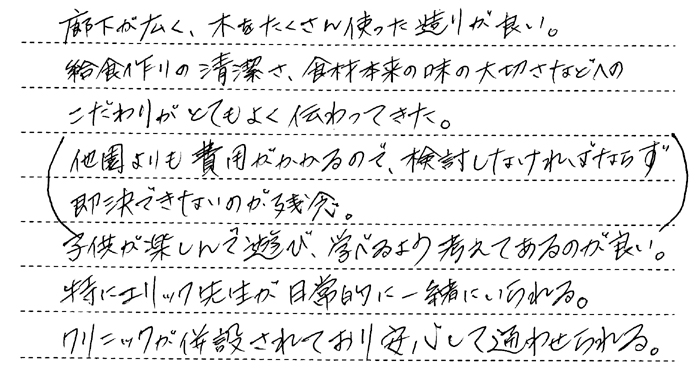 廊下が広く、木をたくさん使った造りが良い。
給食作りの清潔さ、食材本来の味の大切さなどへの
こだわりがとてもよく伝わってきた。
(他園よりも費用がかかるので、検討しなければならず
即決できないのが残念。)
子供が楽しんで遊び、学べるよう考えてあるのが良い。
特にエリック先生が日常的に一緒にいられる。
クリニックが併設されており安心して通わせられる。